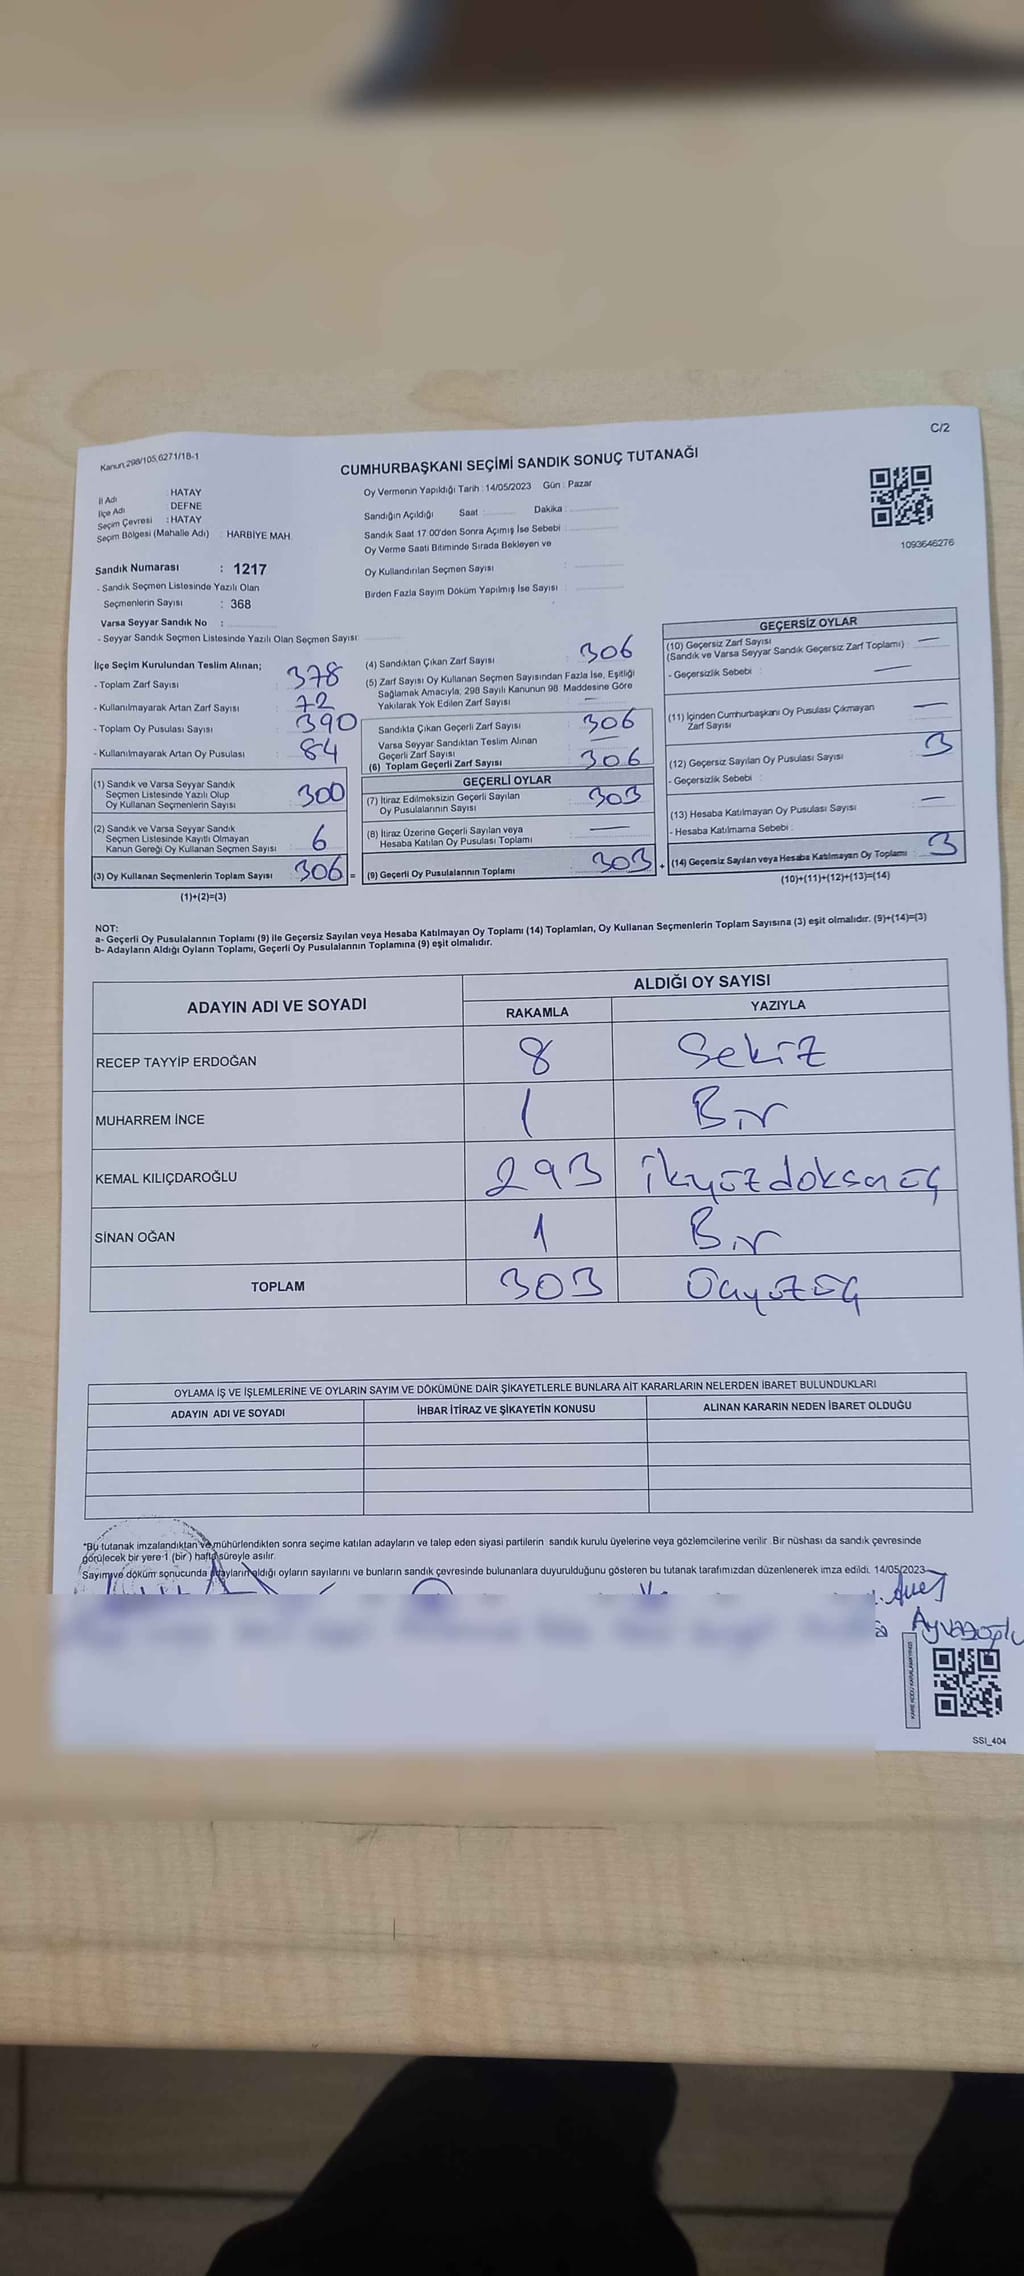 C/2
Kanun;298/105,6271/18-1
CUMHURBAŞKANI SEÇİMİ SANDIK SONUÇ TUTANAĞI
İl Adı : HATAY
İlçe Adı : DEFNE
Seçim Çevresi : HATAY
Seçim Bölgesi (Mahalle Adı) : HARBİYE MAH.
Sandık Numarası : 1217
- Sandık Seçmen Listesinde Yazılı Olan
Seçmenlerin Sayısı : 368
Varsa Seyyar Sandık No :
- Seyyar Sandık Seçmen Listesinde Yazılı Olan Seçmen Sayısı:
Oy Vermenin Yapıldığı Tarih : 14/05/2023 Gün : Pazar
Sandığın Açıldığı Saat : Dakika :
Sandık Saat 17.00'den Sonra Açımış İse Sebebi :
Oy Verme Saati Bitiminde Sırada Bekleyen ve
Oy Kullandırılan Seçmen Sayısı :
Birden Fazla Sayım Döküm Yapılmış İse Sayısı :
1093646276
İlçe Seçim Kurulundan Teslim Alınan;
- Toplam Zarf Sayısı : 378
- Kullanılmayarak Artan Zarf Sayısı : 72
- Toplam Oy Pusulası Sayısı : 390
- Kullanılmayarak Artan Oy Pusulası : 84
(1) Sandık ve Varsa Seyyar Sandık
Seçmen Listesinde Yazılı Olup
Oy Kullanan Seçmenlerin Sayısı : 300
(2) Sandık ve Varsa Seyyar Sandık
Seçmen Listesinde Kayıtlı Olmayan
Kanun Gereği Oy Kullanan Seçmen Sayısı : 6
(3) Oy Kullanan Seçmenlerin Toplam Sayısı : 306 =
(1)+(2)=(3)
(4) Sandıktan Çıkan Zarf Sayısı : 306
(5) Zarf Sayısı Oy Kullanan Seçmen Sayısından Fazla İse, Eşitliği
Sağlamak Amacıyla, 298 Sayılı Kanunun 98. Maddesine Göre
Yakılarak Yok Edilen Zarf Sayısı : —
Sandıkta Çıkan Geçerli Zarf Sayısı : 306
Varsa Seyyar Sandıktan Teslim Alınan
Geçerli Zarf Sayısı : —
(6) Toplam Geçerli Zarf Sayısı : 306
GEÇERLİ OYLAR
(7) İtiraz Edilmeksizin Geçerli Sayılan
Oy Pusulalarının Sayısı : 303
(8) İtiraz Üzerine Geçerli Sayılan veya
Hesaba Katılan Oy Pusulası Toplamı : —
(9) Geçerli Oy Pusulalarının Toplamı : 303 +
GEÇERSİZ OYLAR
(10) Geçersiz Zarf Sayısı
(Sandık ve Varsa Seyyar Sandık Geçersiz Zarf Toplamı) : —
- Geçersizlik Sebebi : —
(11) İçinden Cumhurbaşkanı Oy Pusulası Çıkmayan
Zarf Sayısı : —
(12) Geçersiz Sayılan Oy Pusulası Sayısı : 3
- Geçersizlik Sebebi :
(13) Hesaba Katılmayan Oy Pusulası Sayısı : —
- Hesaba Katılmama Sebebi :
(14) Geçersiz Sayılan veya Hesaba Katılmayan Oy Toplamı : 3
(10)+(11)+(12)+(13)=(14)
NOT:
a- Geçerli Oy Pusulalarının Toplamı (9) ile Geçersiz Sayılan veya Hesaba Katılmayan Oy Toplamı (14) Toplamları, Oy Kullanan Seçmenlerin Toplam Sayısına (3) eşit olmalıdır. (9)+(14)=(3)
b- Adayların Aldığı Oyların Toplamı, Geçerli Oy Pusulalarının Toplamına (9) eşit olmalıdır.
ADAYIN ADI VE SOYADI
ALDIĞI OY SAYISI
RAKAMLA YAZIYLA
RECEP TAYYİP ERDOĞAN 8 Sekiz
MUHARREM İNCE 1 Bir
KEMAL KILIÇDAROĞLU 293 ikiyüzdoksanüç
SİNAN OĞAN 1 Bir
TOPLAM 303 Üçyüzüç
OYLAMA İŞ VE İŞLEMLERİNE VE OYLARIN SAYIM VE DÖKÜMÜNE DAİR ŞİKAYETLERLE BUNLARA AİT KARARLARIN NELERDEN İBARET BULUNDUKLARI
ADAYIN ADI VE SOYADI İHBAR İTİRAZ VE ŞİKAYETİN KONUSU ALINAN KARARIN NEDEN İBARET OLDUĞU
*Bu tutanak imzalandıktan ve mühürlendikten sonra seçime katılan adayların ve talep eden siyasi partilerin sandık kurulu üyelerine veya gözlemcilerine verilir. Bir nüshası da sandık çevresinde
görülecek bir yere 1 (bir) hafta süreyle asılır.
Sayım ve döküm sonucunda adayların aldığı oyların sayılarını ve bunların sandık çevresinde bulunanlara duyurulduğunu gösteren bu tutanak tarafımızdan düzenlenerek imza edildi. 14/05/2023
Ayvazoğlu
SSI_404